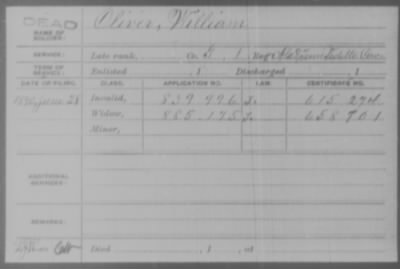 DEAD
NAME OF SOLDIER: Oliver, William
SERVICE: Late rank, Co. G, 1 Reg't Ala. Cav.
TERM OF SERVICE: Enlisted , 1 Discharged , 1
DATE OF FILING. CLASS. APPLICATION NO. LAW. CERTIFICATE NO.
1890 June 28 Invalid, 839.996 615.274
Widow, 885.175 658.701
Minor,
ADDITIONAL SERVICES:
REMARKS:
Died , 1 , at